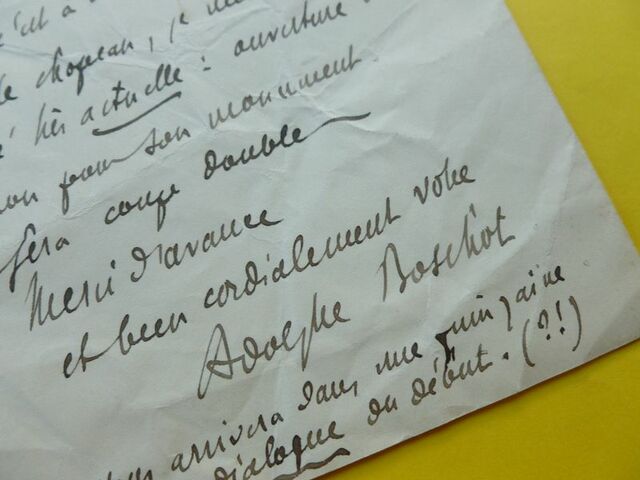 c'est a
le chapeau, je
très actuelle : ouverture
pour son monument.
fera coup double
Merci d'avance
et bien cordialement votre
Adolphe Boschot
arrivera dans une quinzaine
dialogue du début. (?!)